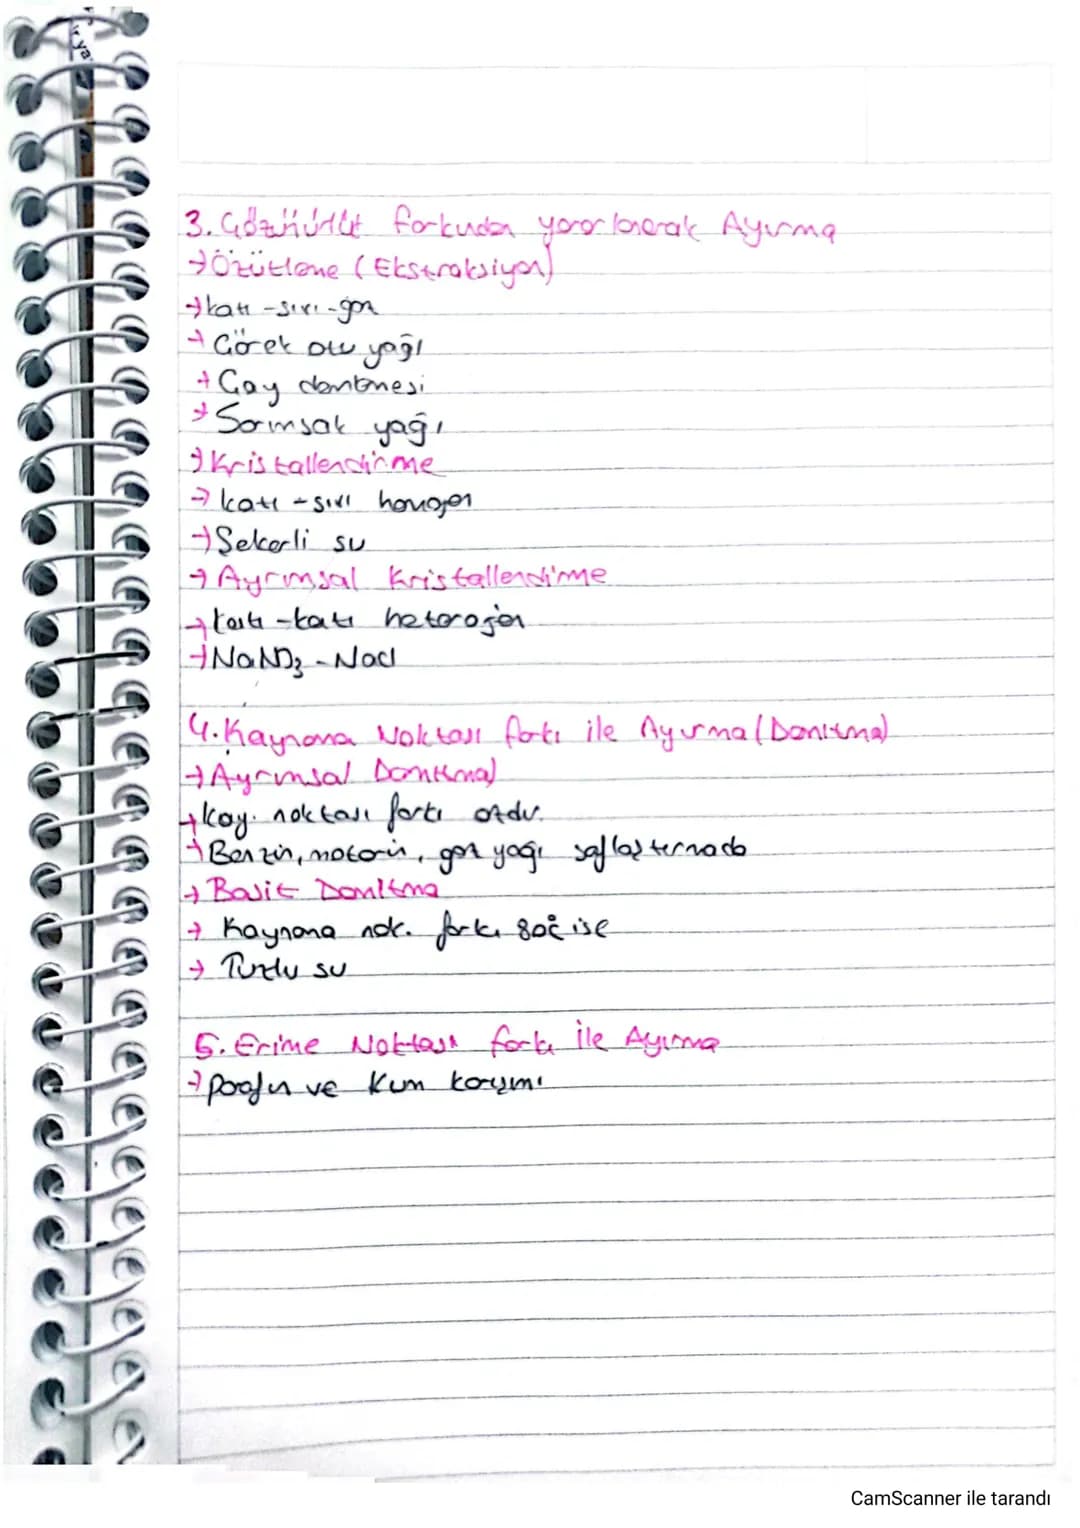 3. Çözünürlük farkından yararlanarak Ayırma
→Özütleme (Ekstraksiyon)
→katı-sıvı-gaz
→Çörek otu yağı
→Çay demlenmesi
→Sarımsak yağı
→Kristallendirme
→katı-sıvı homojen
→Şekerli su
→Ayrımsal Kristallendirme
→katı-katı heterojen
→NaNO₃-NaCl
4. Kaynama Noktası farkı ile Ayırma (Damıtma)
→Ayrımsal Damıtma)
→Kay. noktası farkı azdır.
→Benzin, motorin, gaz yağı saflaştırmada
→Basit Damıtma
→Kaynama nok. farkı 80°C ise
→Tuzlu su
5. Erime Noktası farkı ile Ayırma
→parafin ve Kum karışımı
CamScanner ile tarandı